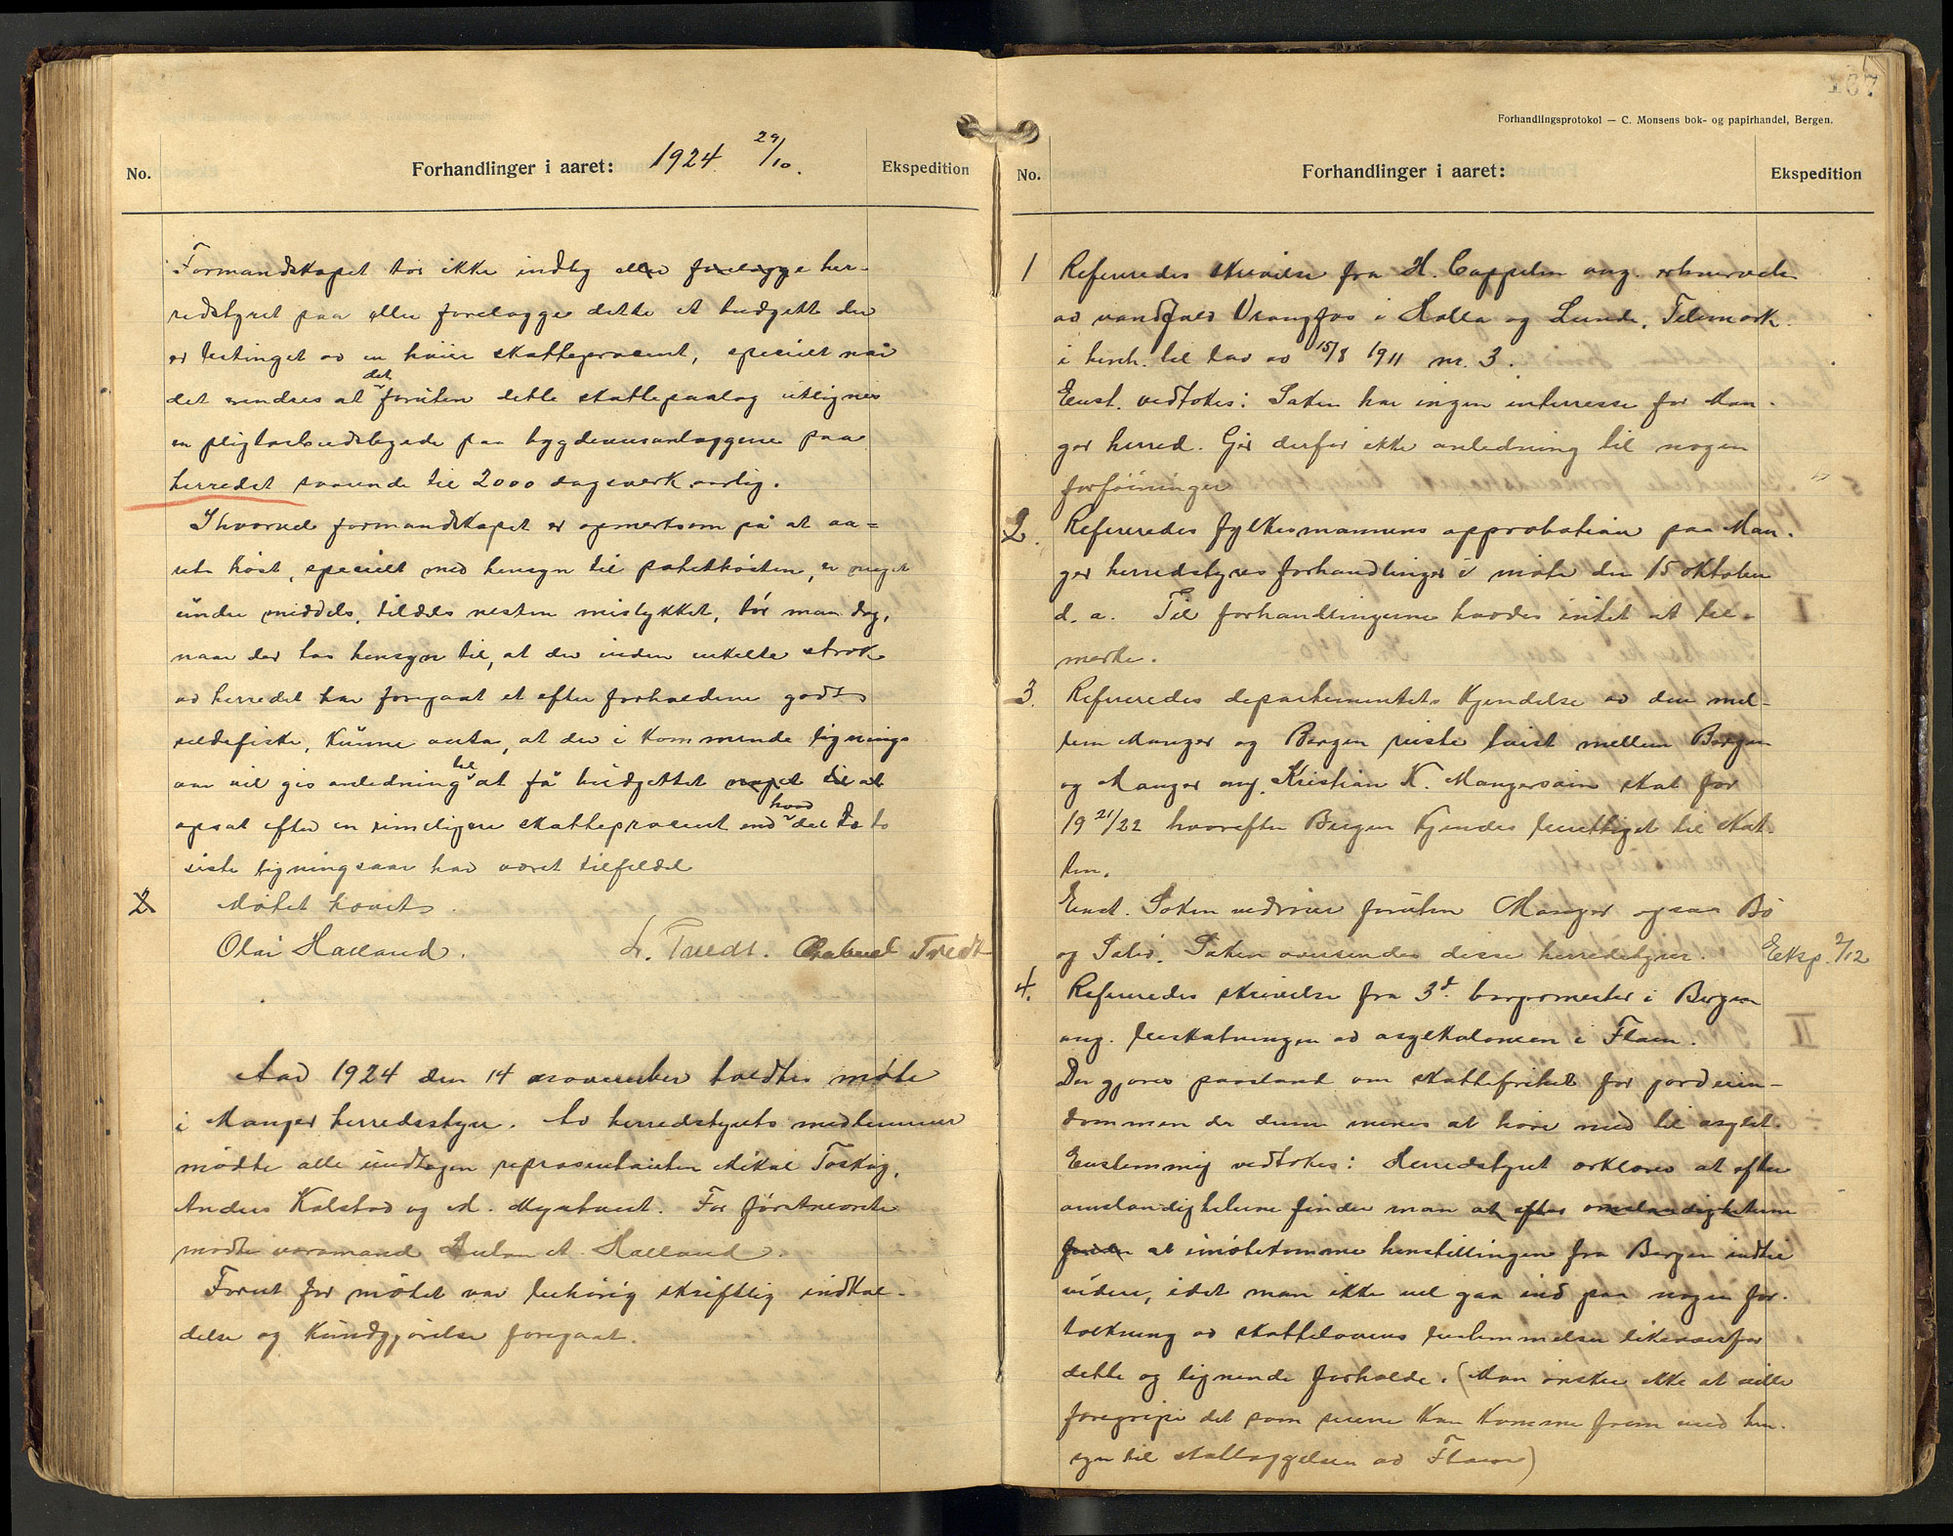 No.
Forhandlinger i aaret: 1924 29/10.
Ekspedition
Formandskapet tør ikke indby eller forelægge her-
redstyret paa eller forelægge dette et budgett der
er betinget av en høiere skatteprocent, specielt naar
det endses at det foruten dette skattepaalæg utlignes
en pligtarbeidsbyrde paa bygdeveisanlæggene paa
herredet svarende til 2000 dagsverk aarlig.
Ihvorvel formandskapet er opmerksom på at aa-
rets høst, specielt med hensyn til potethøsten, er meget
under middels, tildels nesten mislykket, tør man dog,
naar der tas hensyn til, at der inden enkelte strøk
av herredet har foregaat et efter forholdene godt
sildefiske, kunne anta, at der i kommende lignings-
aar vil gis anledning til at få budgettet noget til at
opsat efter en rimeligere skatteprocent end hvad det to to
siste ligningsaar har været tilfelde
2 Møtet hævet.
Olai Halland. L. Tredt. Gabriel Tredt
Aar 1924 den 14 november holdtes møte
i Manger herredsstyre. Av herredstyrets medlemmer
mødte alle undtagen repræsentanten Mikal Toskøy,
Anders Kalstad og M. Myrtveit. For førstnevnte
møtte varamand Anton A. Halland.
Forut for møtet var behørig skriftlig indkal-
delse og kundgjørelse foregaat.
167
Forhandlingsprotokol — C. Monsens bok- og papirhandel, Bergen.
No.
Forhandlinger i aaret:
Ekspedition
1 Refereredes skrivelse fra H. Cappelen ang. erhvervelse
av vandfald Vrangfos i Holla og Lunde, Telemark
i henh. til lov av 15/8 1911 nr. 3.
Enst. vedtokes: Saken har ingen interresse for Man-
ger herred. Gir derfor ikke anledning til nogen
forføininger
2. Refereredes fylkesmannens approbation paa Man-
ger herredstyres forhandlinger i møte den 15 oktober
d. a. Til forhandlingerne havdes intet at be-
merke.
3. Refereredes departementets kjendelse av den mel-
lem Manger og Bergen reiste tvist mellem Bergen
og Manger ang. Kristian K. Mangersøin skat for
1921/22 hvorefter Bergen kjendes berettiget til skat-
ten.
Enst. Saken vedrører foruten Manger ogsaa Bø
og Sæbø. Saken oversendes disse herredstyrer. Eksp. 2/12
4. Refereredes skrivelse fra 3d. borgermester i Bergen
ang. beskatningen av asylkolonien i Floen.
Der gjøres paastand om skattefrihet for jordeien-
dommen da denne menes at høre med til asylet.
Enstemmig vedtokes: Herredstyret erklærer at efter
omstændighetene finder man at efter omstændighetene
finder at imøtekomme henstillingen fra Bergen indtil
videre, idet man ikke vil gaa ind paa nogen for-
tolkning av skattelovens bestemmelser likeoverfor
dette og lignende forholde. (Man ønsker ikke at ville
foregripe det som senere kan komme frem med hen-
syn til skatlæggelsen av Floen)